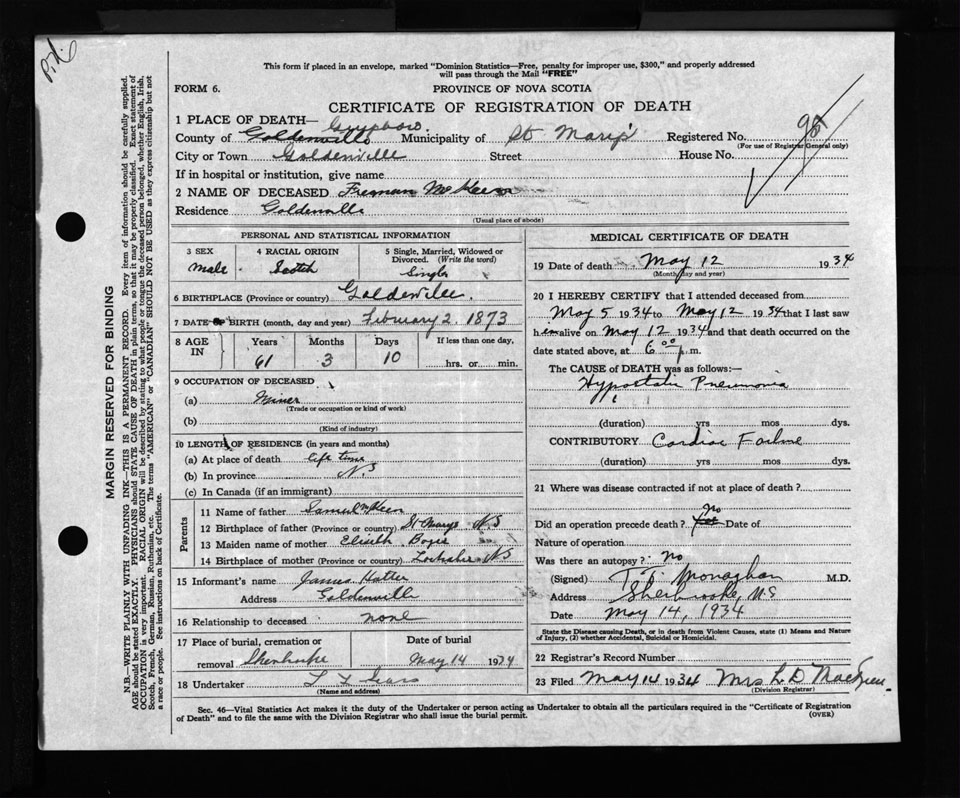 This form if placed in an envelope, marked "Dominion Statistics—Free, penalty for improper use, $300," and properly addressed
will pass through the Mail "FREE"
FORM 6. PROVINCE OF NOVA SCOTIA
CERTIFICATE OF REGISTRATION OF DEATH
1 PLACE OF DEATH—
County of Goldenville Municipality of St Marys Registered No. 98
(For use of Registrar General only)
City or Town Goldenville Street House No.
If in hospital or institution, give name
2 NAME OF DECEASED Freman McKeen
Residence Goldenville
(Usual place of abode)
PERSONAL AND STATISTICAL INFORMATION
3 SEX 4 RACIAL ORIGIN 5 Single, Married, Widowed or
Divorced. (Write the word)
male Scotch Single
6 BIRTHPLACE (Province or country) Goldenville.
7 DATE OF BIRTH (month, day and year) February 2. 1873
8 AGE IN Years Months Days If less than one day,
61 3 10 hrs. or min.
9 OCCUPATION OF DECEASED
(a) Miner
(Trade or occupation or kind of work)
(b)
(Kind of industry)
10 LENGTH OF RESIDENCE (in years and months)
(a) At place of death life time
(b) In province N.S
(c) In Canada (if an immigrant)
Parents
11 Name of father Samuel McKeen
12 Birthplace of father (Province or country) St Marys NS
13 Maiden name of mother
14 Birthplace of mother (Province or country) Lochaber NS
15 Informant's name James Hatter
Address Goldenville
16 Relationship to deceased none
17 Place of burial, cremation or Date of burial
removal Sherbrooke May 14 1934
18 Undertaker
(Name and address)
MEDICAL CERTIFICATE OF DEATH
19 Date of death May 12 1934
(Month, day and year)
20 I HEREBY CERTIFY that I attended deceased from
May 5 1934 to May 12 1934 that I last saw
h im alive on May 12 1934 and that death occurred on
date stated above, at 6 00 p. m.
The CAUSE of DEATH was as follows:—
Hypostatic Pneumonia
(duration) yrs mos dys.
CONTRIBUTORY Cardiac Failure
(duration) yrs mos dys.
21 Where was disease contracted if not at place of death?
no
Did an operation precede death? Date of
Nature of operation
Was there an autopsy? No
(Signed) T.T. Monaghan M.D.
Address Sherbrooke, N.S
Date May 14, 1934
State the Disease causing Death, or in death from Violent Causes, state (1) Means and Nature
of Injury, (2) whether Accidental, Suicidal or Homicidal.
22 Registrar's Record Number
23 Filed May 14 1934 Mrs L D
(Division Registrar)
Sec. 46—Vital Statistics Act makes it the duty of the Undertaker or person acting as Undertaker to obtain all the particulars required in the "Certificate of Registration
of Death" and to file the same with the Division Registrar who shall issue the burial permit. (OVER)
MARGIN RESERVED FOR BINDING
N.B.—WRITE PLAINLY WITH UNFADING INK—THIS IS A PERMANENT RECORD. Every item of information should be carefully supplied.
AGE should be stated EXACTLY. PHYSICIANS should STATE CAUSE OF DEATH in plain terms, so that it may be properly classified. Exact statement of
OCCUPATION is very important. RACIAL ORIGIN will be described by stating to what people or tongue the deceased person belonged, whether English, Irish,
Scotch, French, German, Russian, Ruthenian, etc. The terms "AMERICAN" or "CANADIAN" SHOULD NOT BE USED as they express citizenship but not
a race or people. See instructions on back of Certificate.